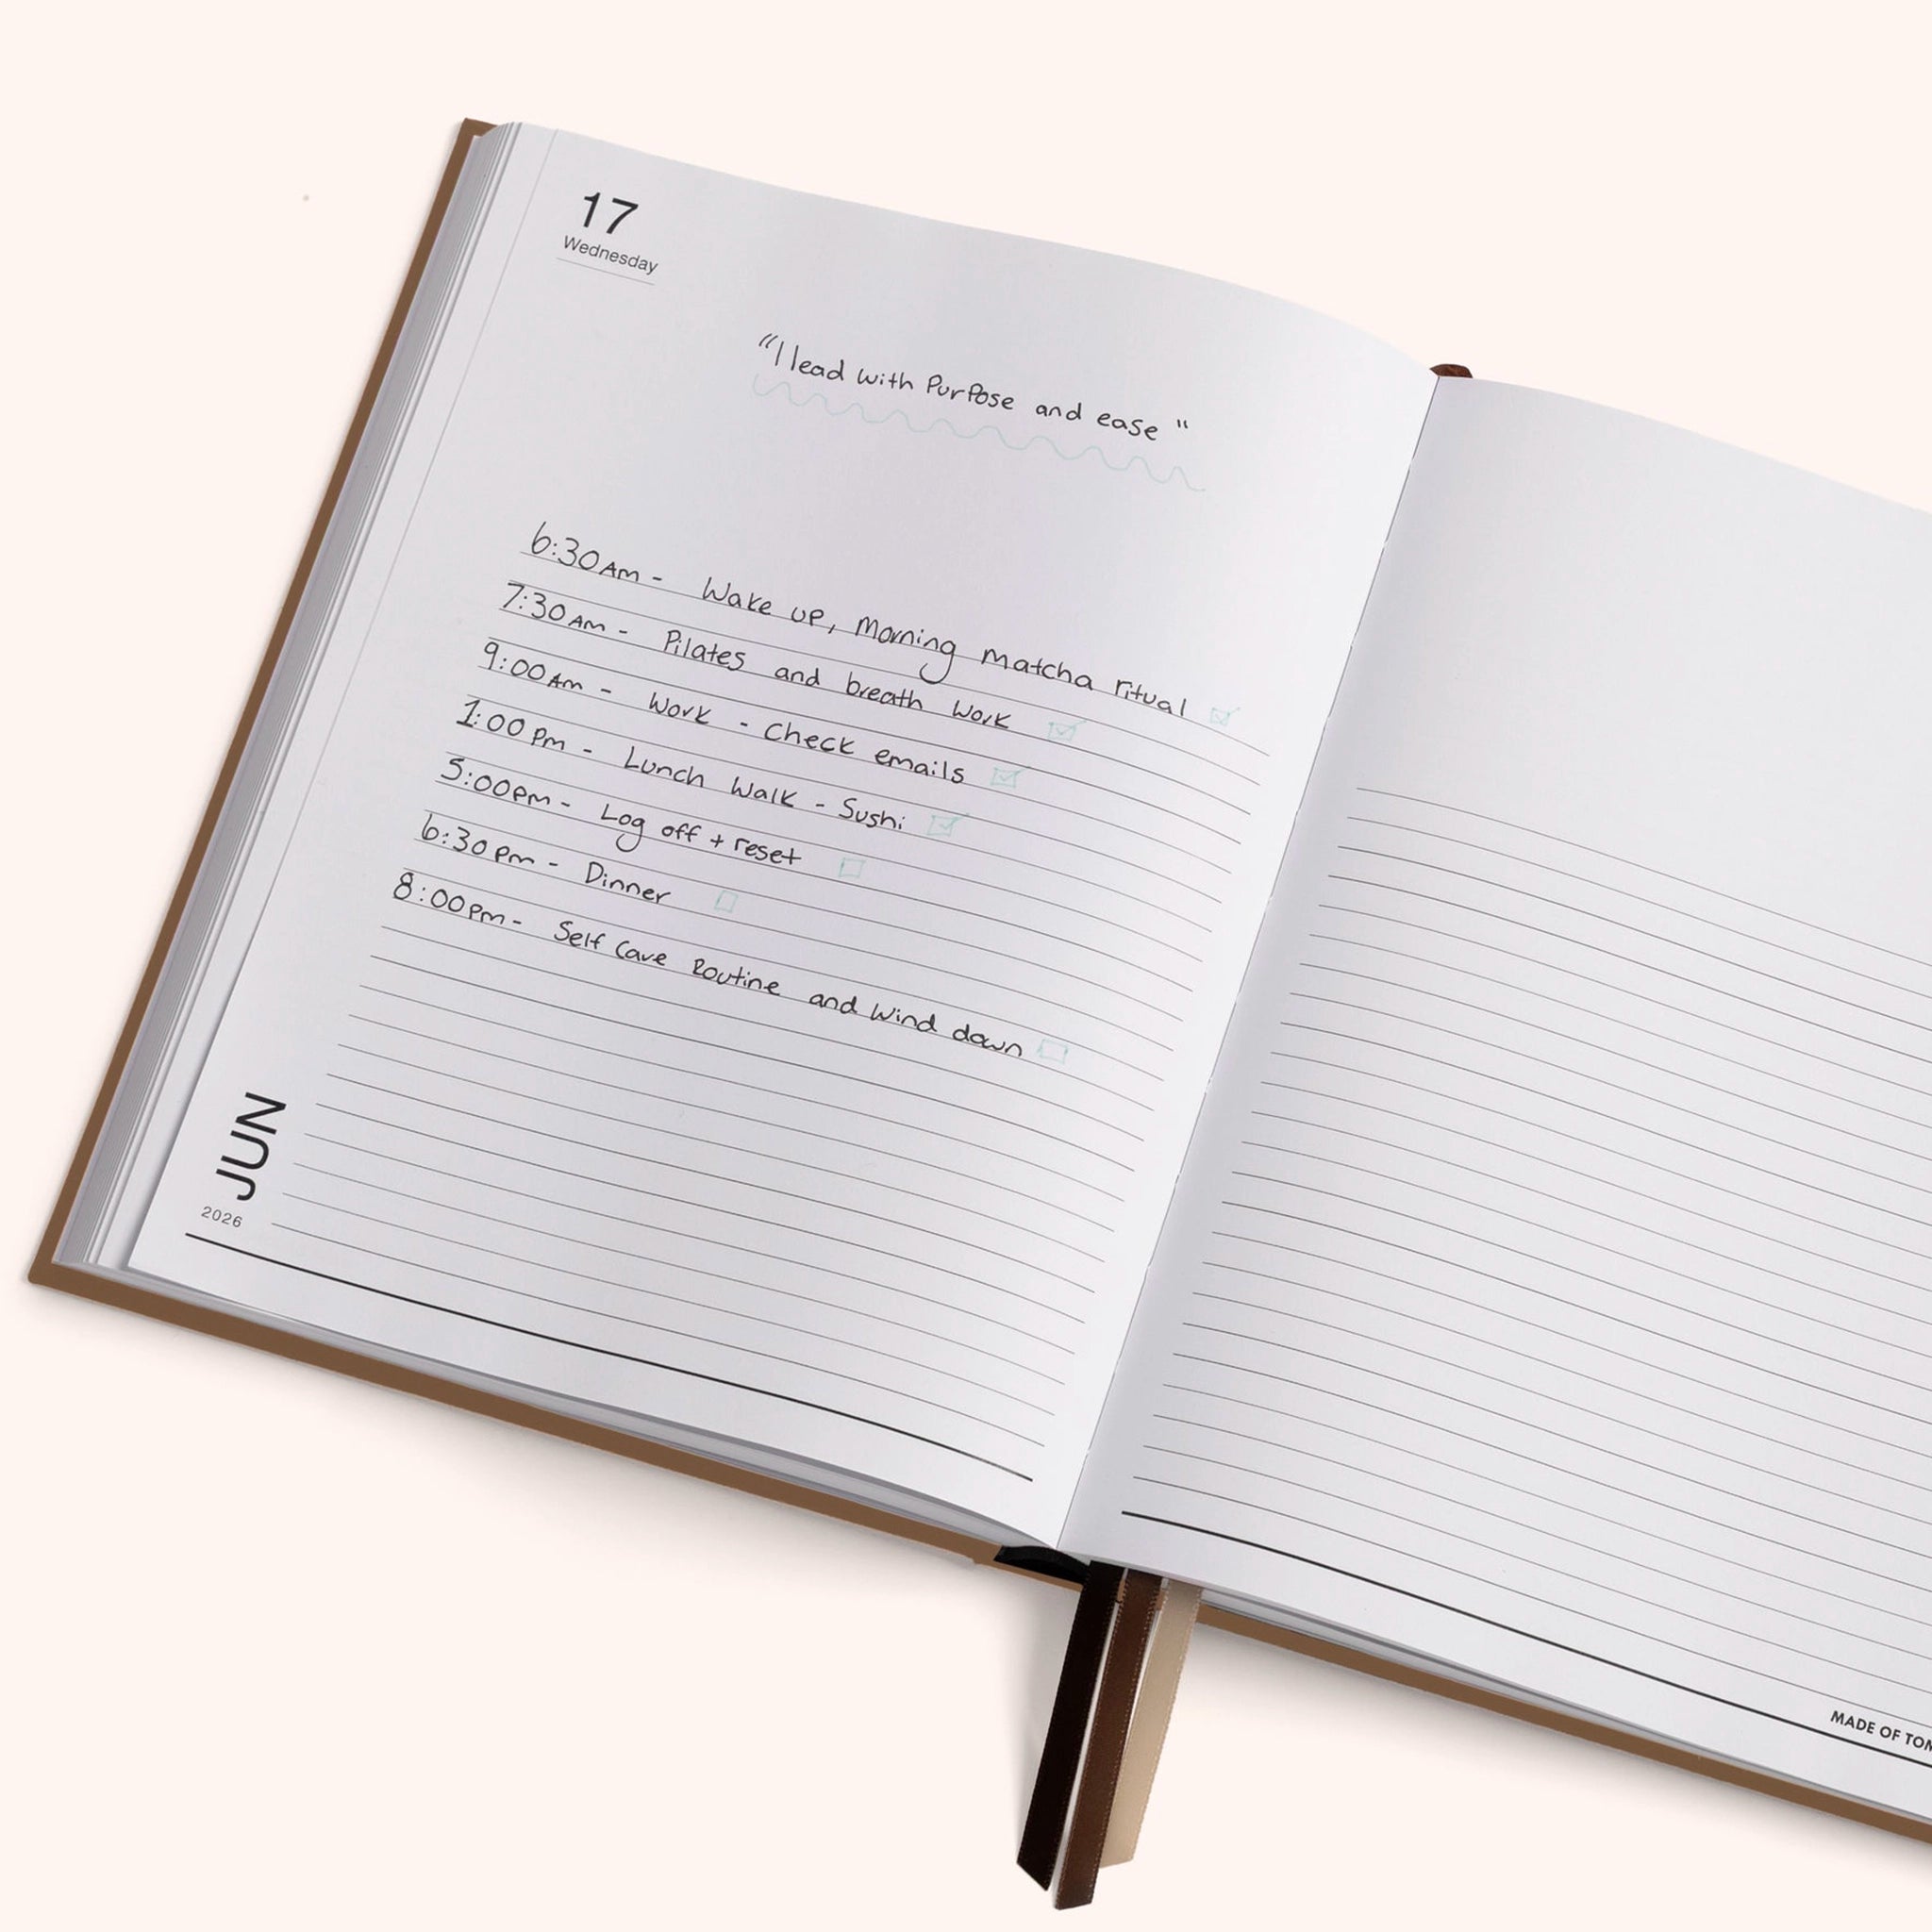 17
Wednesday
"I lead with Purpose and ease"
6:30AM - Wake up, Morning matcha ritual
7:30AM - Pilates and breath Work
9:00AM - Work - Check emails
1:00PM - Lunch Walk - Sushi
5:00PM - Log off + reset
6:30PM - Dinner
8:00PM - Self Care Routine and Wind down
JUN
2026
MADE OF TOM